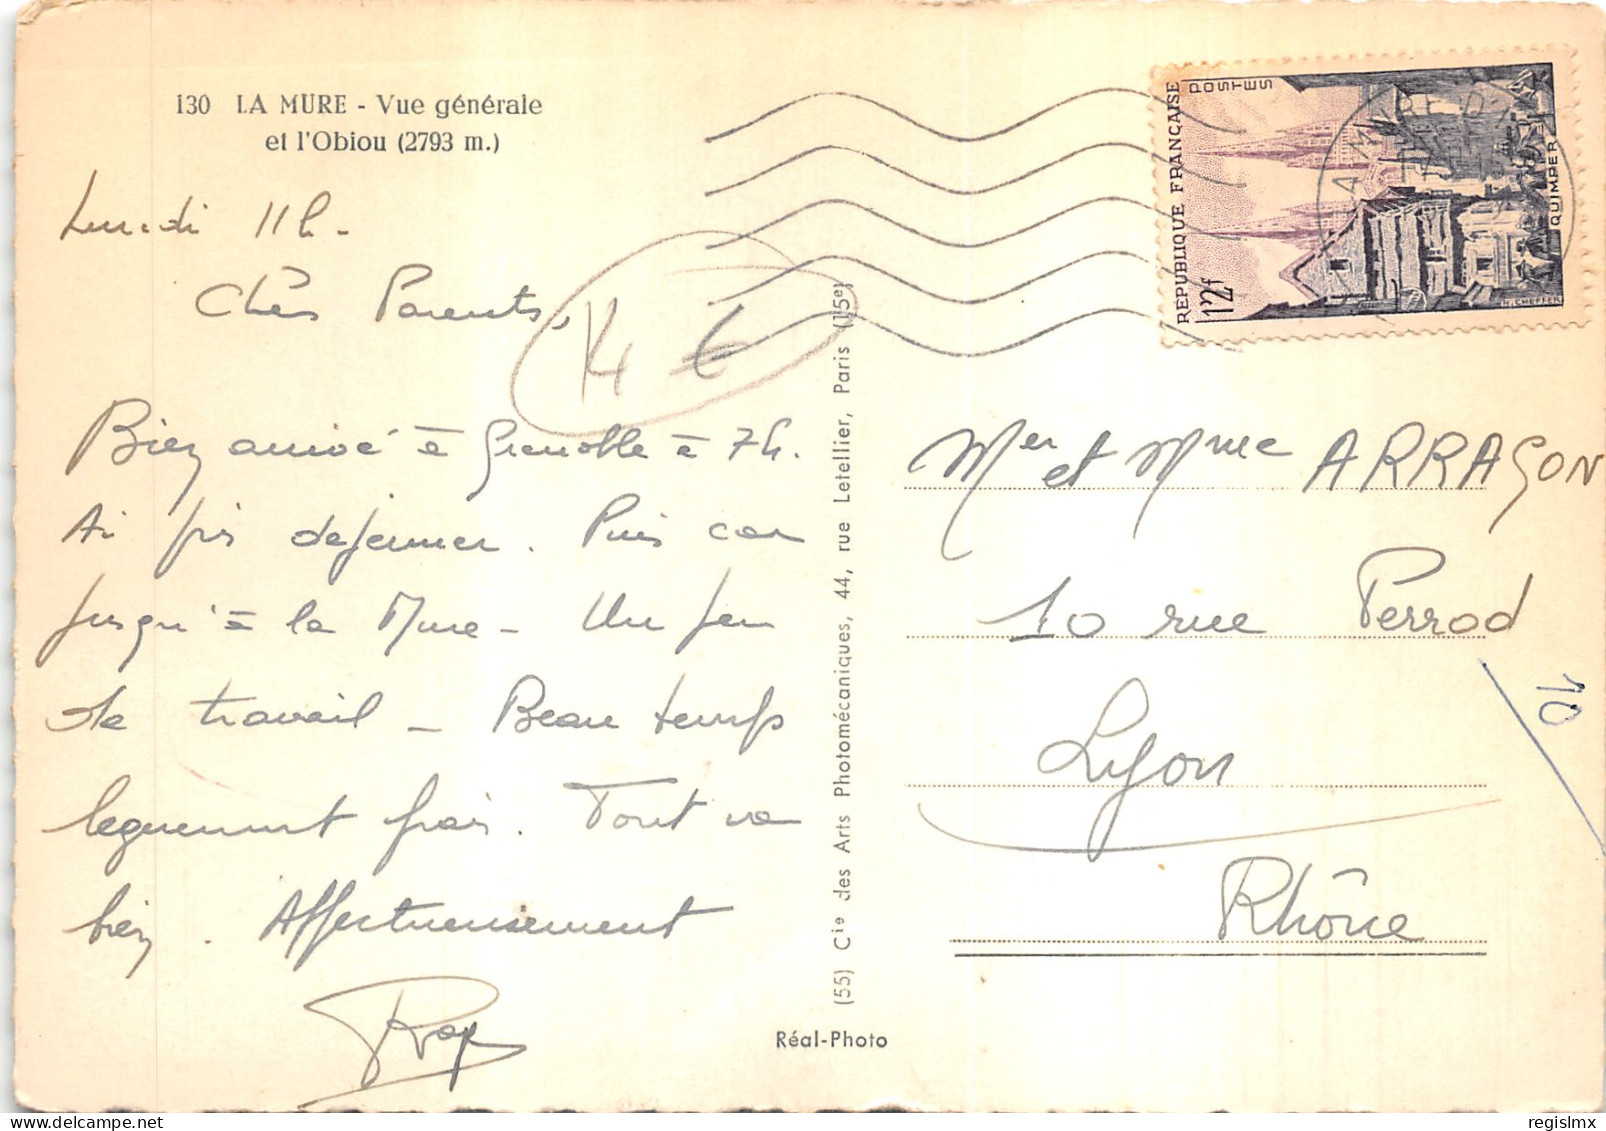 130 LA MURE - Vue générale
et l'Obiou (2793 m.)
Lundi 11h -
Chers Parents,
14 €
Bien arrivé à Grenoble à 7h.
Ai pris dejeuner. Puis car
jusqu'à la Mure - Un peu
de travail - Beau temps
legerement frais. Tout va
bien. Affectueusement
(55) Cie des Arts Photomécaniques, 44, rue Letellier, Paris (15e)
Réal-Photo
REPUBLIQUE FRANÇAISE
POSTES
12f
QUIMPER
H. CHEFFER
LA MURE
Mer et Mme ARRAGON
10 rue Perrod
Lyon
Rhône
10
regislmx
delcampe.net